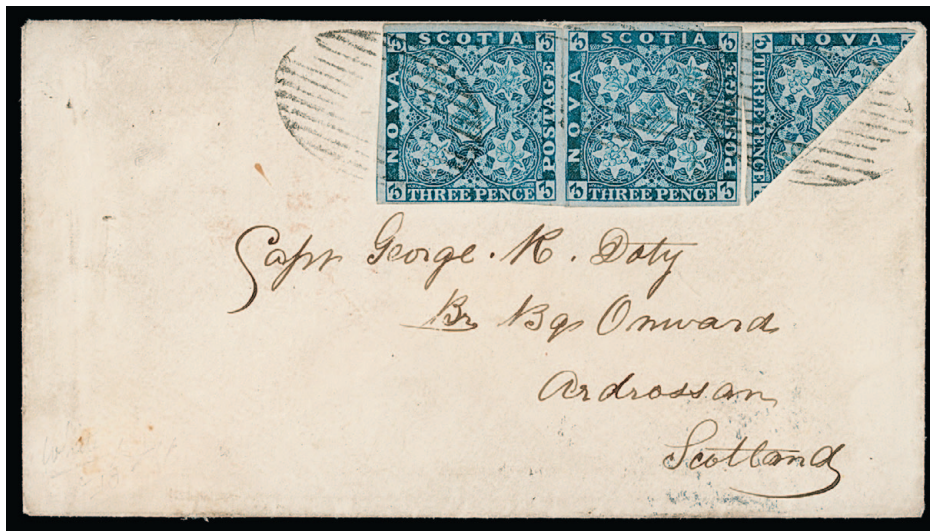 NOVA SCOTIA POSTAGE THREE PENCE
NOVA SCOTIA POSTAGE THREE PENCE
NOVA THREE PENCE
Capt George. R. Doty
Br Bgs Onward
Ardrossan
Scotland